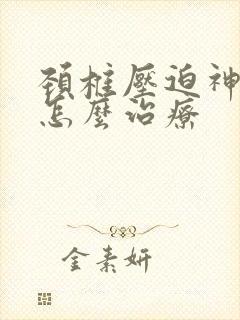 頸椎壓迫神
怎麼治療
金素妍